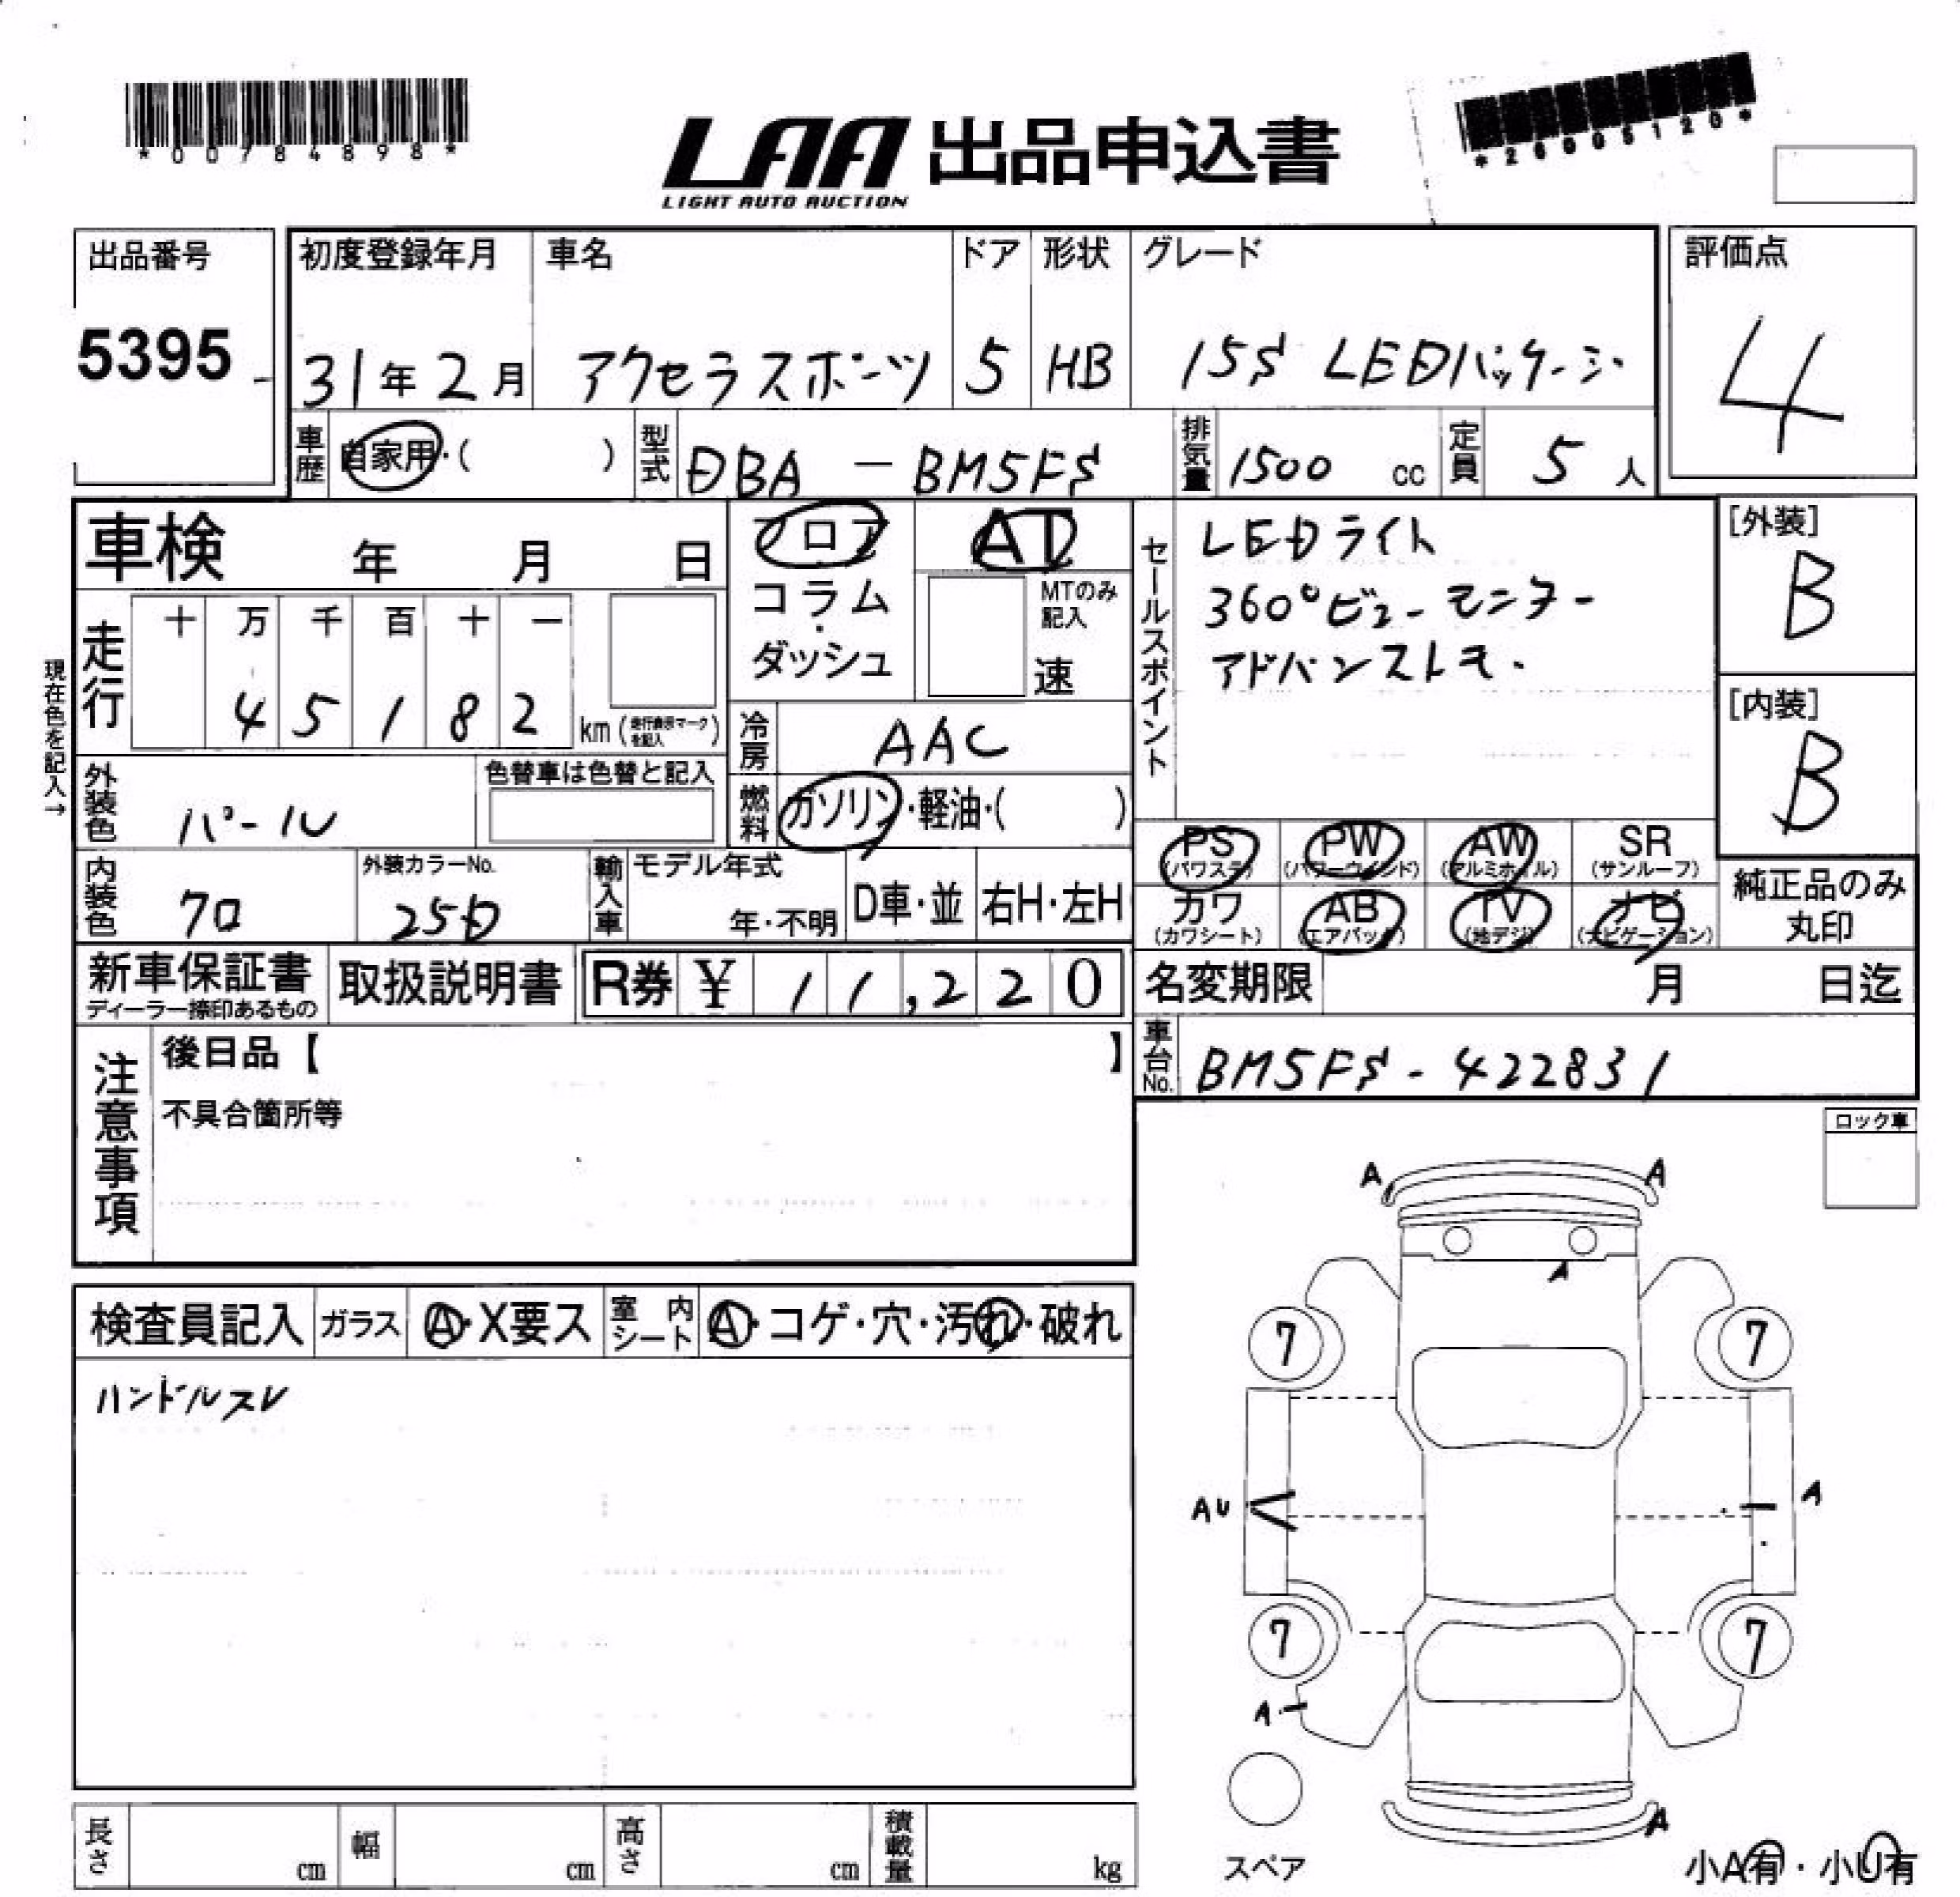 *00784898*
LAA 出品申込書
LIGHT AUTO AUCTION
*26005120*
出品番号
5395
初度登録年月
31年2月
車名
アクセラスポーツ
ドア
5
形状
HB
グレード
15S LEDパッケージ
評価点
4
車歴
自家用・( )
型式
DBA－BM5FS
排気量
1500 cc
定員
5人
車検 年 月 日
現在色を記入→
走行
十 万 千 百 十 一
4 5 1 8 2
km (走行表示マークを記入)
フロア
コラム
・
ダッシュ
AT
MTのみ記入
速
冷房
AAC
燃料
ガソリン・軽油・( )
外装色
パール
色替車は色替と記入
内装色
クロ
外装カラーNo.
25D
輸入車
モデル年式
年・不明
D車・並
右H・左H
セールスポイント
LEDライト
360°ビューモニター
アドバンストキー
[外装]
B
[内装]
B
PS (パワステ)
PW (パワーウインド)
AW (アルミホイル)
SR (サンルーフ)
カワ (カワシート)
AB (エアバック)
TV (地デジ)
ナビ (ナビゲーション)
純正品のみ
丸印
新車保証書
ディーラー捺印あるもの
取扱説明書
R券 ¥ 11,220
名変期限 月 日迄
車台No.
BM5FS-422831
注意事項
後日品【 】
不具合箇所等
ロック車
検査員記入
ガラス
A・X要ス
室内シート
A・コゲ・穴・汚れ・破れ
ハンドルスレ
A A
A
7 7
AU A
7 7
A
A
スペア
小A有・小U有
長さ cm
幅 cm
高さ cm
積載量 kg